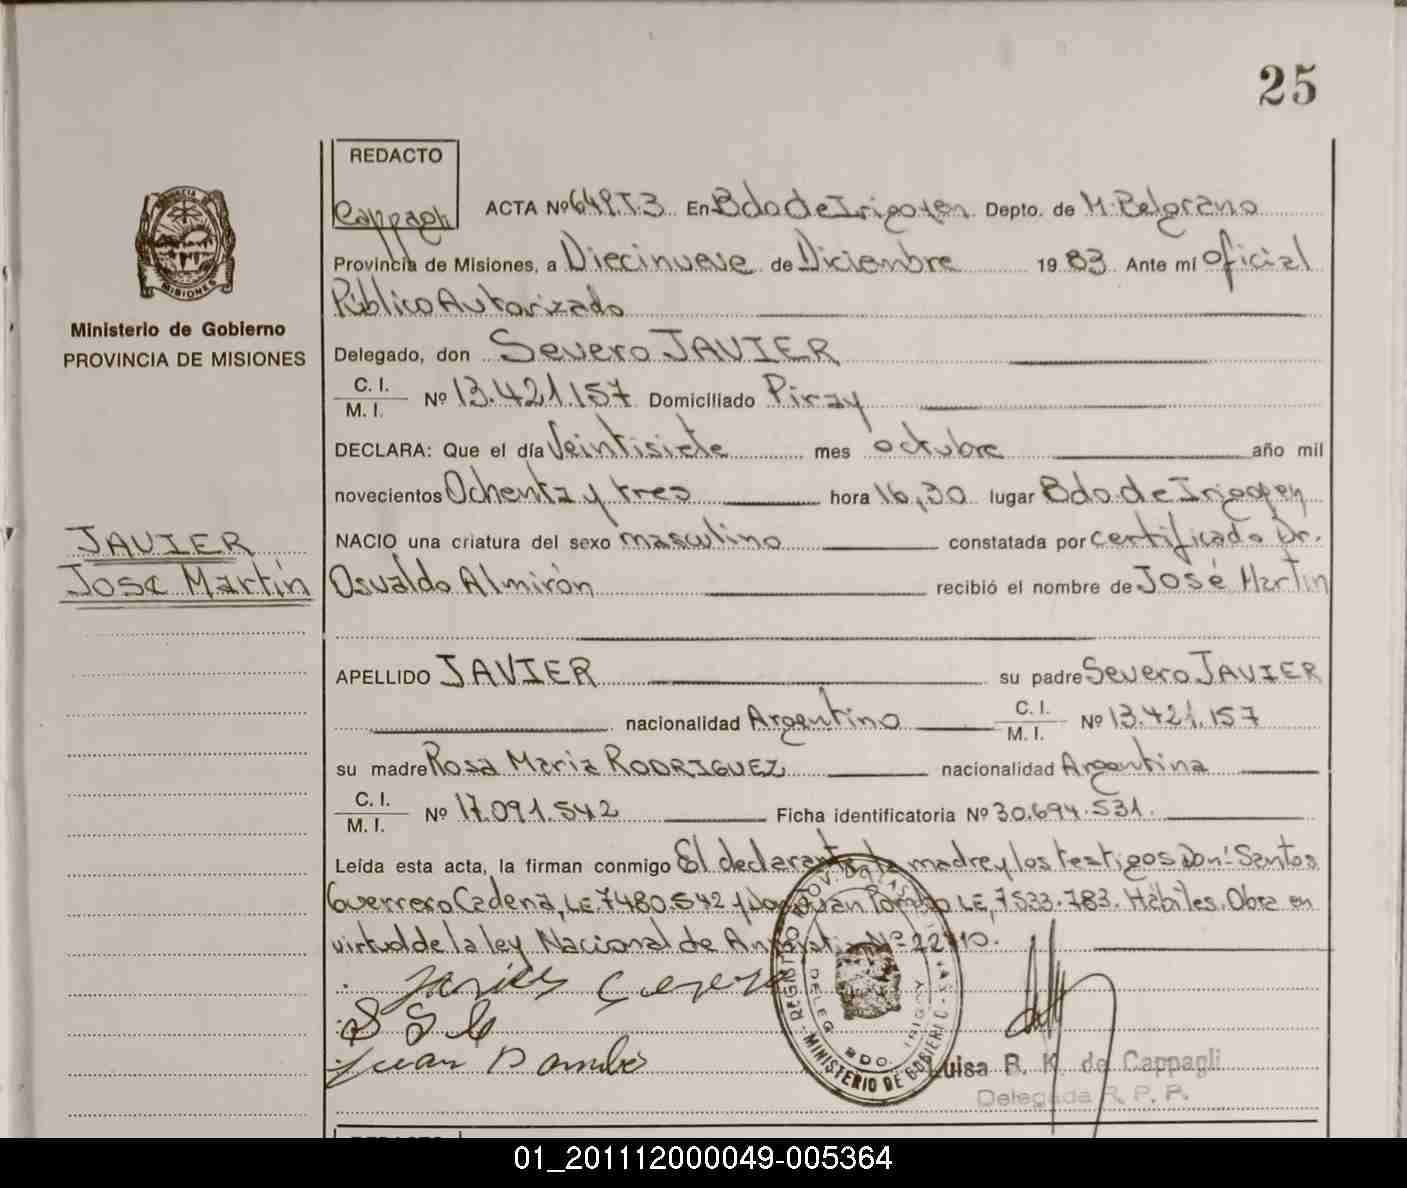 25
REDACTO
Cappagli
ACTA Nº 649.T3. En Bdo de Irigoyen. Depto. de M. Belgrano
Provincia de Misiones, a Diecinueve de Diciembre 1983. Ante mí Oficial
Público Autorizado
Delegado, don Severo JAVIER
C. I.
M. I. Nº 13.421.157 Domiciliado Piray
DECLARA: Que el día Veintisiete mes octubre año mil
novecientos Ochenta y tres hora 16,30 lugar Bdo. de Irigoyen
NACIO una criatura del sexo masculino constatada por certificado Dr.
Osvaldo Almirón recibió el nombre de José Martín
APELLIDO JAVIER su padre Severo JAVIER
nacionalidad Argentino C. I.
M. I. Nº 13.421.157
su madre Rosa Maria RODRIGUEZ nacionalidad Argentina
C. I.
M. I. Nº 17.091.542 Ficha identificatoria Nº 30.694.531.
Leída esta acta, la firman conmigo El declarante la madre y los testigos Don: Santos
Guerrero Cadena, LE. 7480.542 y Don Juan LE, 7533.783. Hábiles. Obra en
virtud de la ley Nacional de Amnistia Nº 22410.
Javier Severo
Juan
REGISTRO PROV. DE LAS
DELEG. BDO. IRIGOY
MINISTERIO DE GOBIERNO
Luisa R. K. de Cappagli
Delegada R. P. P.
MISIONES
Ministerio de Gobierno
PROVINCIA DE MISIONES
JAVIER
José Martín
01_201112000049-005364